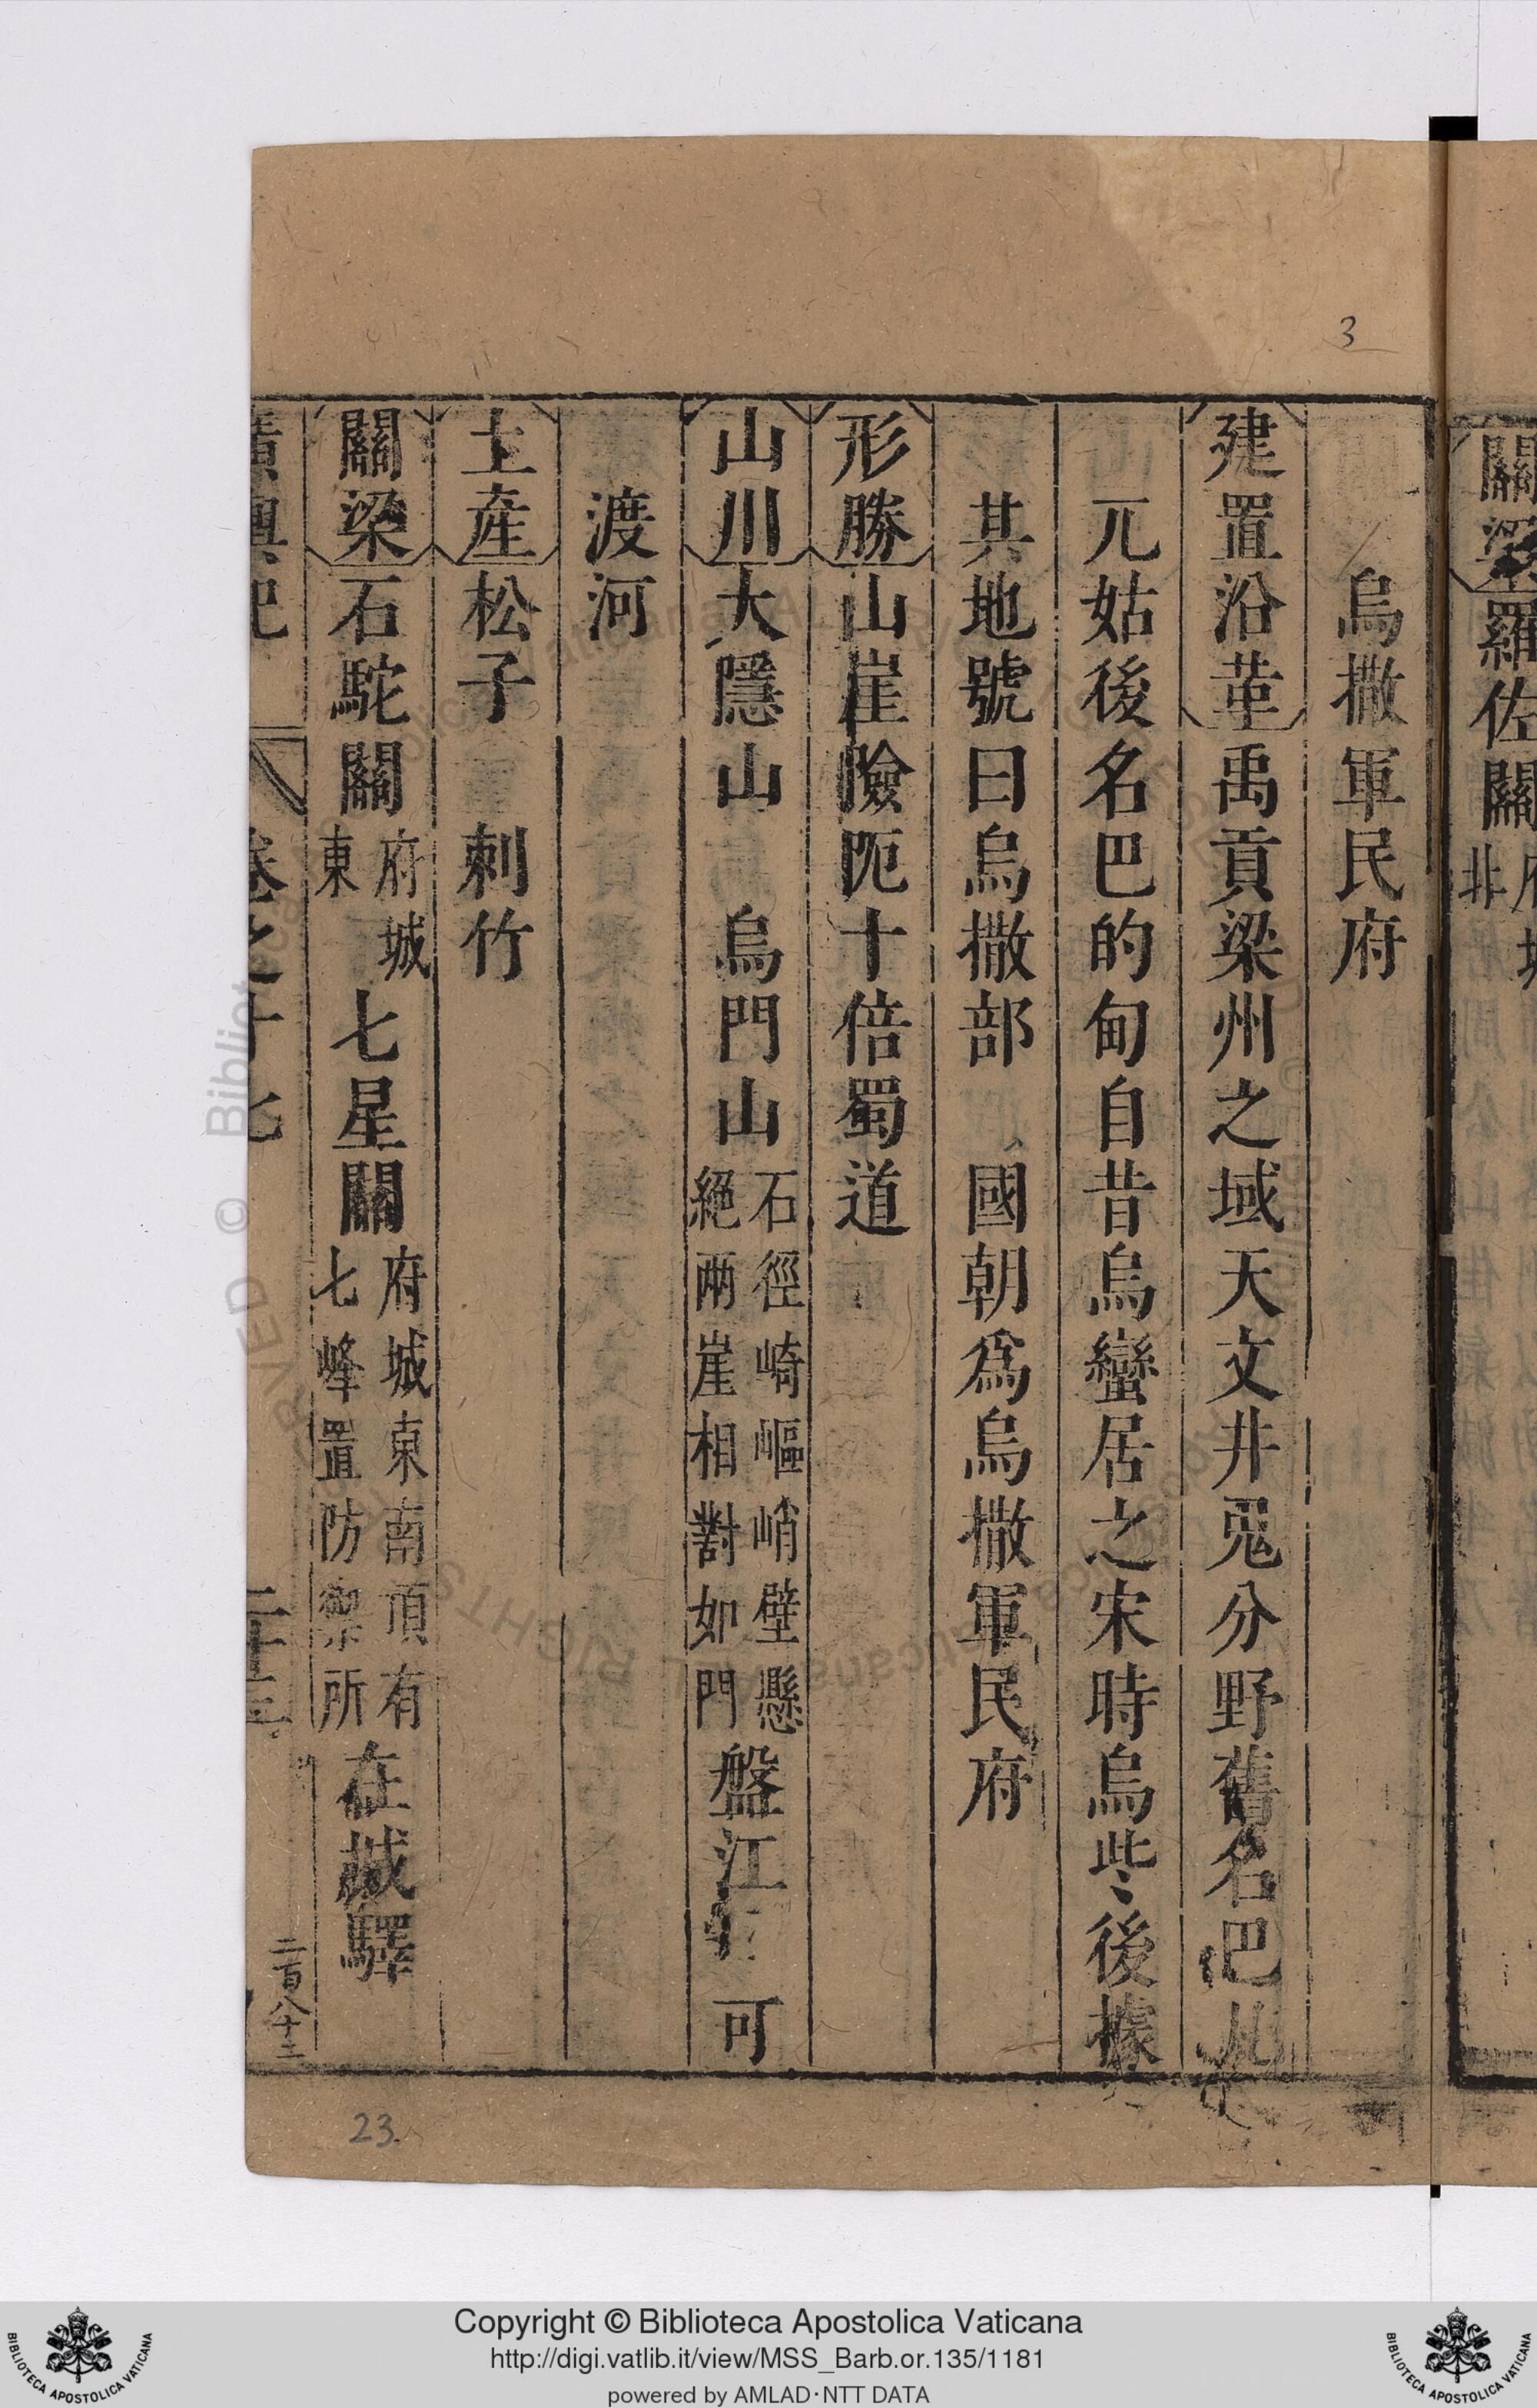 關梁羅佐關
北
3
烏撒軍民府
建置沿革禹貢梁州之域天文井鬼分野舊名巴凡
兀姑後名巴的甸自昔烏蠻居之宋時烏些後據
其地號曰烏撒部 國朝爲烏撒軍民府
形勝山崖險阨十倍蜀道
山川大隱山 烏門山石徑崎嶇峭壁懸
絕兩崖相對如門盤江 可
渡河
土產松子 刺竹
關梁石駝關府城
東七星關府城東南頂有
七峰置防禦所在城驛
廣輿記 卷之十七 二十三
二百八十二
23
Copyright © Biblioteca Apostolica Vaticana
http://digi.vatlib.it/view/MSS_Barb.or.135/1181
powered by AMLAD·NTT DATA
BIBLIOTECA APOSTOLICA VATICANA
BIBLIOTECA APOSTOLICA VATICANA